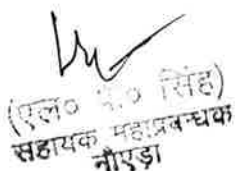 (एल० पी० सिंह)
सहायक महाप्रबन्धक
नौएडा